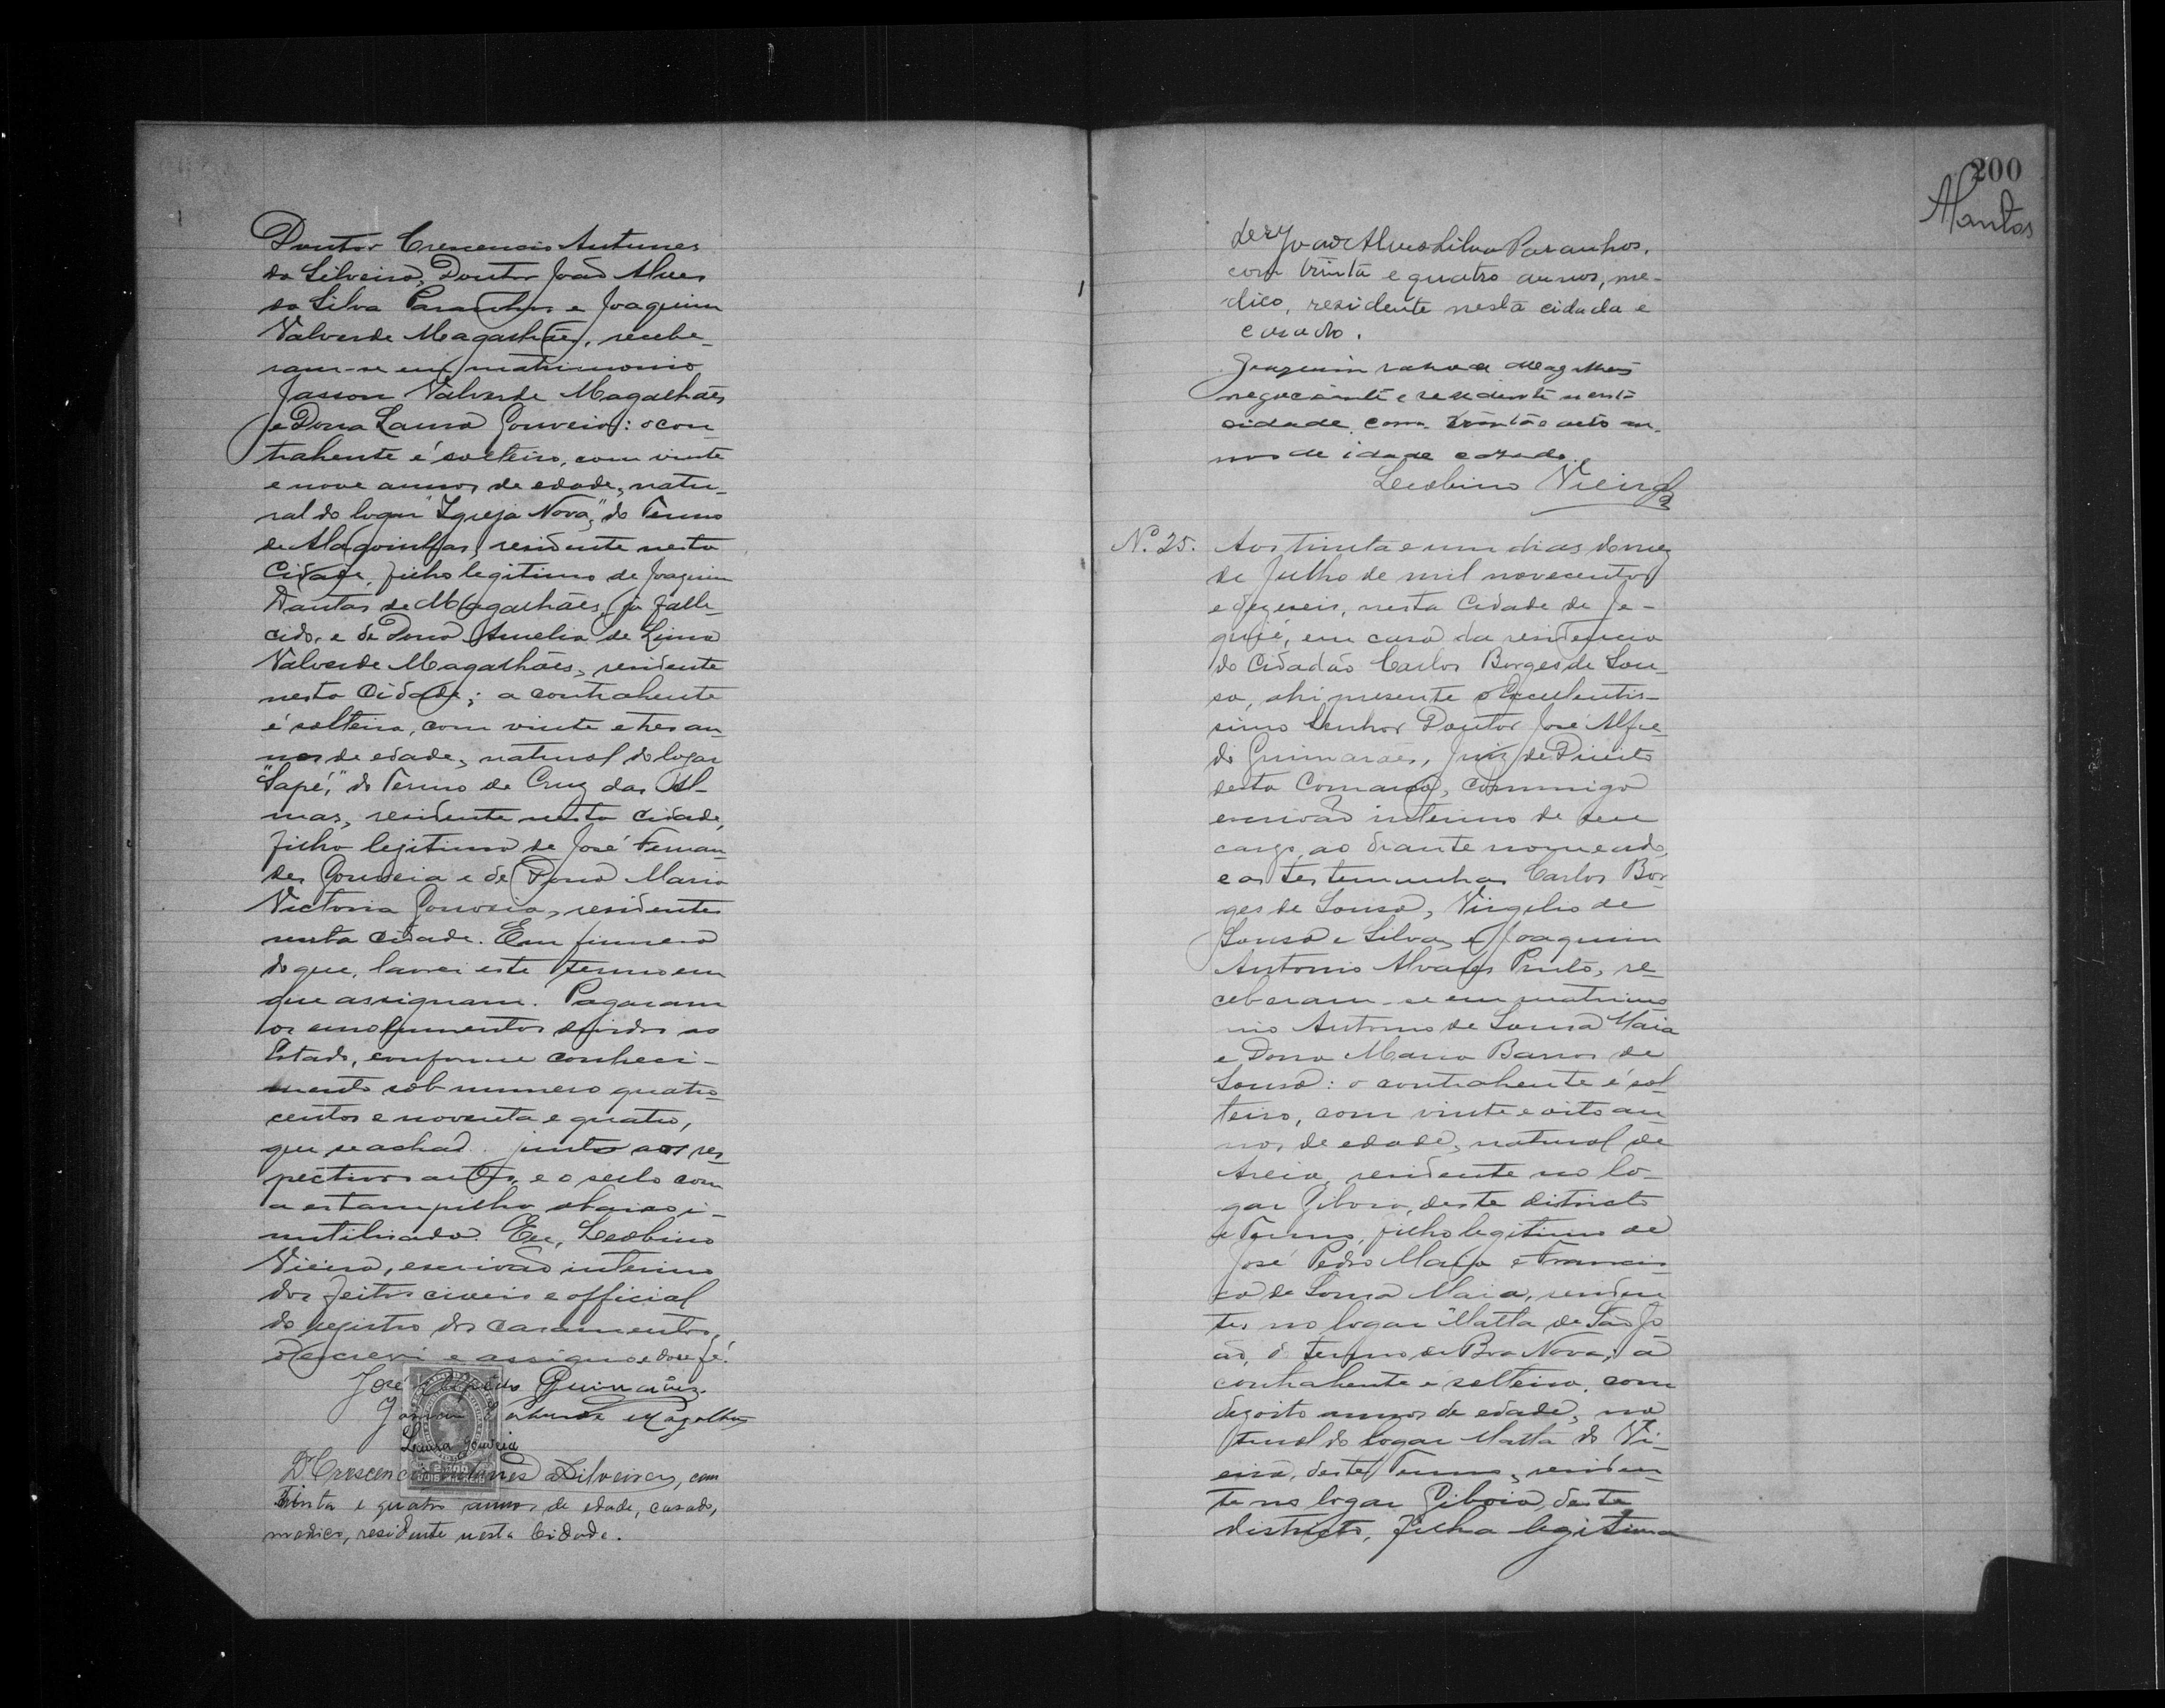 Doutor Crescencio Antunes
da Silveira, Doutor João Alves
da Silva Paranhos e Joaquim
Valverde Magalhães, recebe-
ram-se em matrimonio
Jasson Valverde Magalhães
e Dona Laura Gouveia: o con-
trahente é solteiro, com vinte
e nove annos de edade, natu-
ral do logar "Igreja Nova", do Termo
de Alagoinhas, residente nesta
Cidade, filho legitimo de Joaquim
Dantas de Magalhães, já falle-
cido, e de Dona Amelia de Lima
Valverde Magalhães, residente
nesta Cidade; a contrahente
é solteira, com vinte e tres an-
nos de edade, natural do logar
"Sapé," do Termo de Cruz das Al-
mas, residente nesta cidade,
filha legitima de José Fernan-
des Gouveia e de Dona Maria
Victoria Gouveia, residentes
nesta cidade. Em firmeza
do que, lavrei este termo em
que assignam. Pagaram
os emolumentos devidos ao
Estado, conforme conheci-
mento sob numero quatro-
centos e noventa e quatro,
que se acha junto aos res-
pectivos autos, e o sello com
a estampilha abaixo i-
nutilisada. Eu, Leobino
Vieira, escrivão interino
dos feitos civeis e official
do registro dos casamentos,
o escrevi e assigno e dou fé.
José Alfredo Guimarães.
Jasson Valverde Magalhães
Laura Gouveia
2.000
DOIS MIL REIS
Dr Crescencio Antunes da Silveira, com
trinta e quatro annos de edade, casado,
medico, residente nesta Cidade.
200
Mantas
João Alves da Silva Paranhos,
com trinta e quatro annos, me-
dico, residente nesta cidade e
casado.
Joaquim Valverde Magalhães
negociante e residente nesta
cidade com trinta e oito an-
nos de idade casado.
Leobino Vieira
N.º 25. Aos trinta e um dias do mez
de Julho de mil novecentos
e dezeseis, nesta Cidade de Je-
quié, em casa da residencia
do Cidadão Carlos Borges de Sou-
sa, ahi presente o Excellentis-
simo Senhor Doutor José Alfre-
do Guimarães, Juiz de Direito
desta Comarca, commigo
escrivão interino de seu
cargo, ao diante nomeado,
e as testemunhas Carlos Bor-
ges de Sousa, Virgilio de
Sousa e Silva, e Joaquim
Antonio Alvares Pinto, re-
ceberam-se em matrimo
nio Antonio de Sousa Maia
e Dona Maria Barros de
Sousa: o contrahente é sol
teiro, com vinte e oito an
nos de edade, natural de
Areia, residente no lo-
gar Giboia, deste districto
e Termo, filho legitimo de
José Pedro Maia e Francis-
ca de Sousa Maia, residen
tes no logar Matta de São Jo
ão, do termo de Boa Nova; a
contrahente é solteira, com
dezoito annos de edade, na
tural do logar Matta do Vi-
eira, deste Termo, residen-
te no logar Giboia, deste
districto, filha legitima